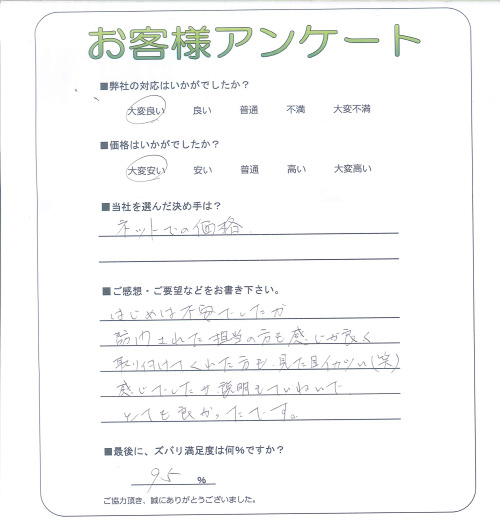 お客様アンケート
■弊社の対応はいかがでしたか？
大変良い 良い 普通 不満 大変不満
■価格はいかがでしたか？
大変安い 安い 普通 高い 大変高い
■当社を選んだ決め手は？
ネットでの価格
■ご感想・ご要望などをお書き下さい。
はじめは不安でしたが
訪問された担当の方も感じが良く
取り付けてくれた方も見た目イカツい(笑)
感じでしたが説明もていねいで
とても良かったです。
■最後に、ズバリ満足度は何%ですか？
95 %
ご協力頂き、誠にありがとうございました。